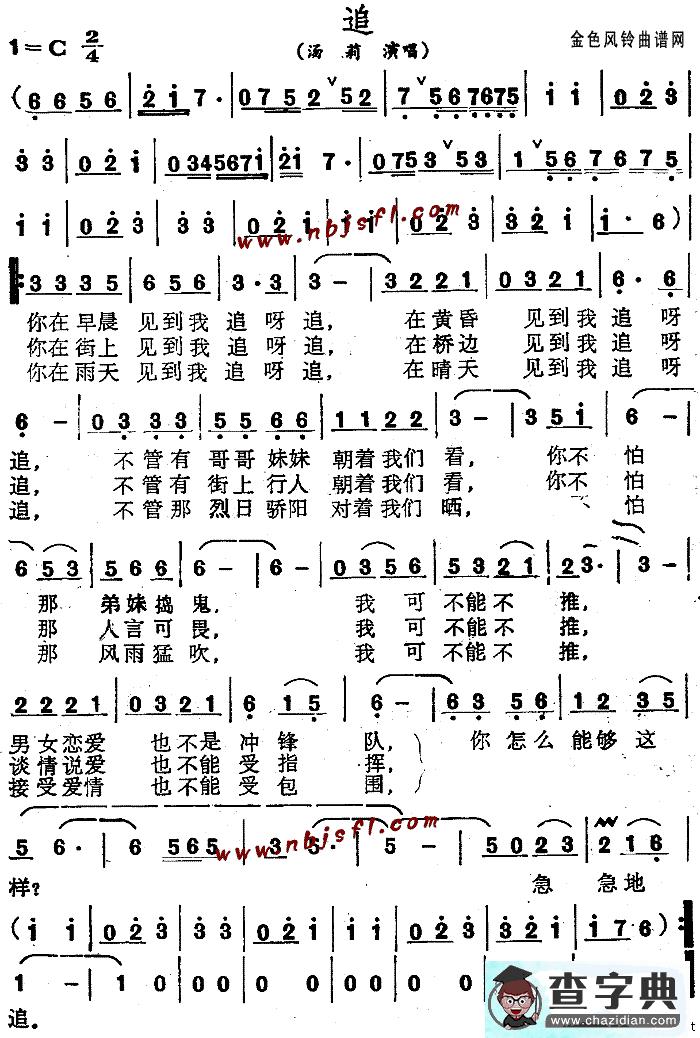 追
1=C 2/4
(汤 莉 演唱)
金色风铃曲谱网
(6 6 5 6 | 2 i 7 · | 0 7 5 2 5 2 | 7 5 6 7 6 7 5 | i i | 0 2 3 |
3 3 | 0 2 i | 0 3 4 5 6 7 i | 2 i 7 · | 0 7 5 3 5 3 | 1 5 6 7 6 7 5 |
i i | 0 2 3 | 3 3 | 0 2 i | i i | 0 2 3 | 3 2 i | i · 6) |
www.nbjsfl.com
3 3 3 5 | 6 5 6 | 3 · 3 | 3 - | 3 2 2 1 | 0 3 2 1 | 6 · 6 |
你在早晨 见到我 追 呀 追, 在黄昏 见到我 追 呀
你在街上 见到我 追 呀 追, 在桥边 见到我 追 呀
你在雨天 见到我 追 呀 追, 在晴天 见到我 追 呀
6 - | 0 3 3 3 | 5 5 6 6 | 1 1 2 2 | 3 - | 3 5 i | 6 - |
追, 不管有 哥哥妹妹 朝着我们 看, 你不 怕
追, 不管有 街上行人 朝着我们 看, 你不 怕
追, 不管那 烈日骄阳 对着我们 晒, 不 怕
6 5 3 | 5 6 6 | 6 - | 6 - | 0 3 5 6 | 5 3 2 1 | 2 3 · | 3 - |
那 弟妹捣鬼, 我 可 不能不 推,
那 人言可畏, 我 可 不能不 推,
那 风雨猛吹, 我 可 不能不 推,
2 2 2 1 | 0 3 2 1 | 6 1 5 | 6 - | 6 3 5 6 | 1 2 3 5 |
男女恋爱 也不是 冲 锋 队, 你 怎么 能够 这
谈情说爱 也不能 受 指 挥,
接受爱情 也不能 受 包 围,
5 6 · | 6 5 6 5 | 3 5 · | 5 - | 5 0 2 3 | 2 1 6 |
www.nbjsfl.com
样? 急 急地
(i i | 0 2 3 | 3 3 | 0 2 i | i i | 0 2 3 | 3 2 i | i 7 6) :
1 - | 1 0 | 0 0 | 0 0 | 0 0 | 0
追.
查字典
www.chazidian.com
t